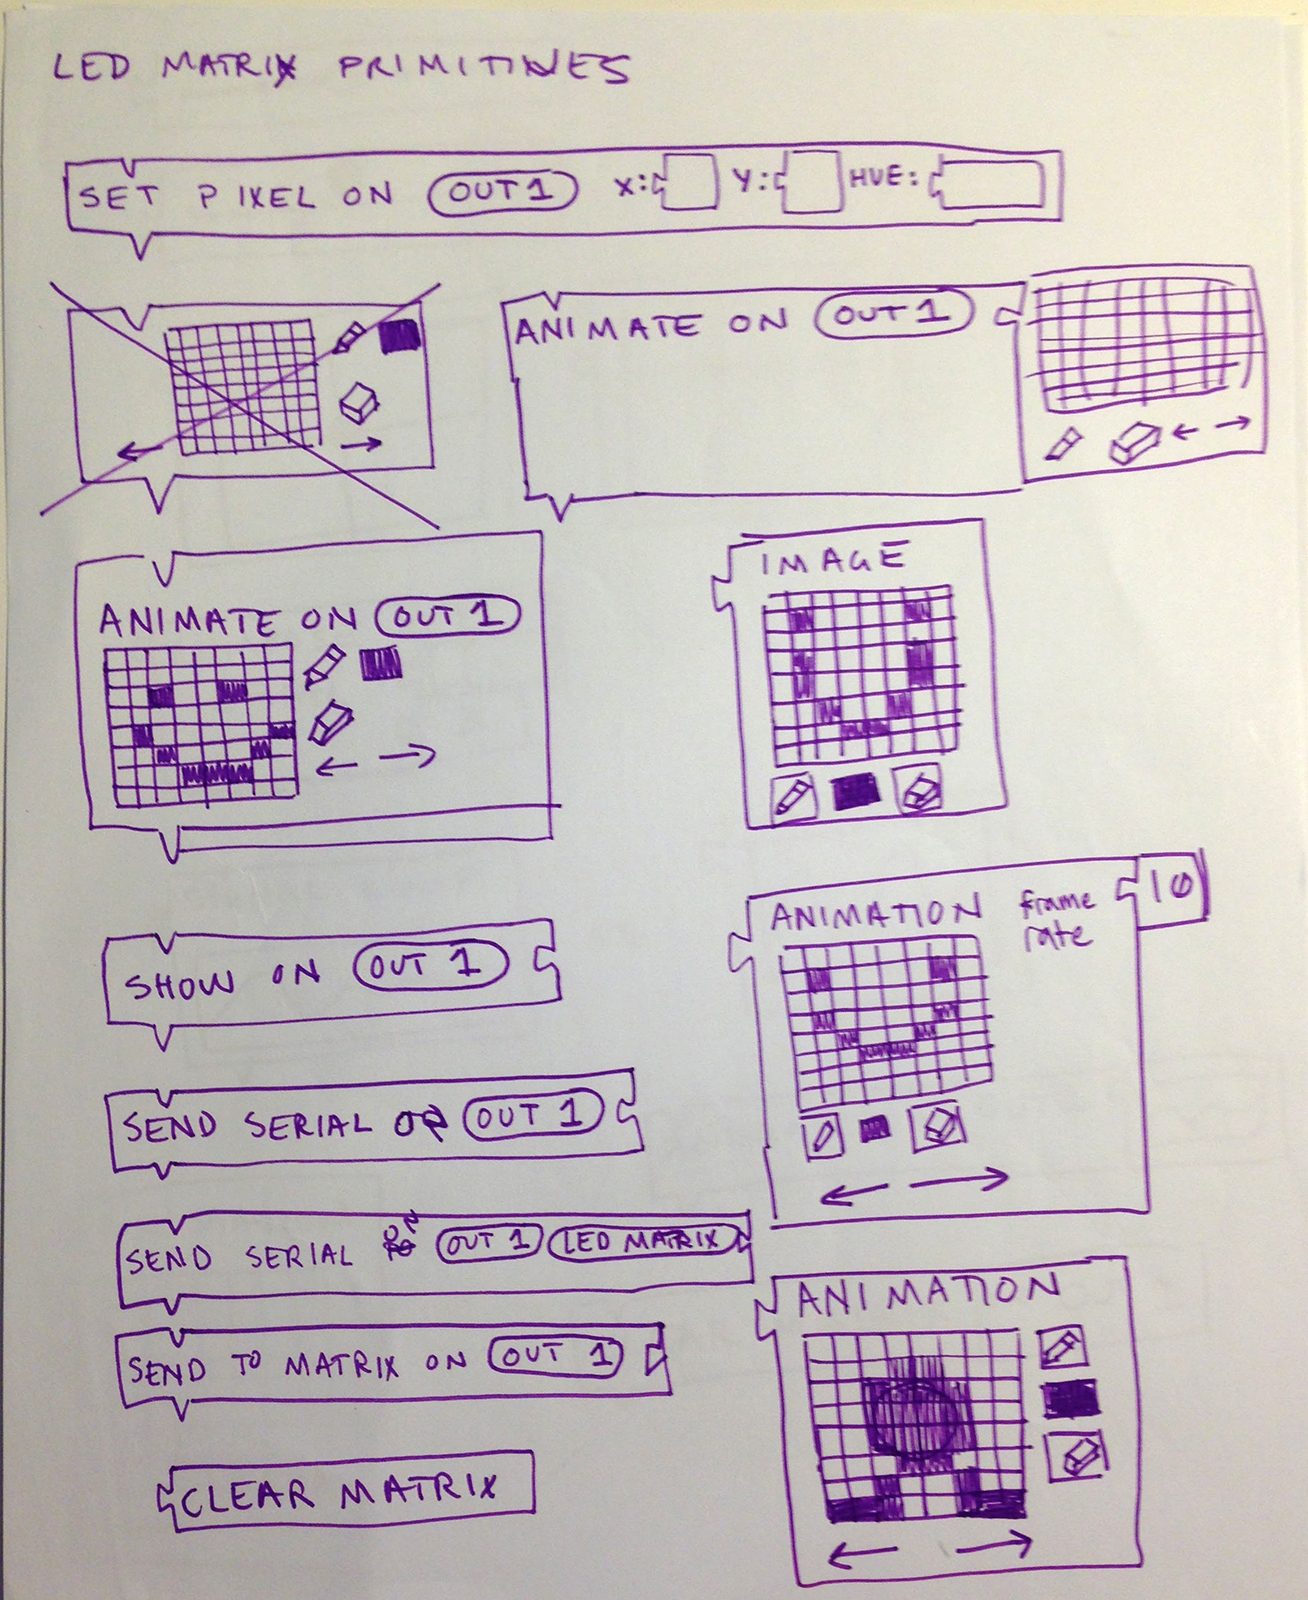 LED MATRIX PRIMITIVES
SET PIXEL ON OUT 1 X: Y: HUE:
ANIMATE ON OUT 1
ANIMATE ON OUT 1
IMAGE
ANIMATION frame rate 10
SHOW ON OUT 1
SEND SERIAL OUT 1
SEND SERIAL OUT 1 LED MATRIX
SEND TO MATRIX ON OUT 1
ANIMATION
CLEAR MATRIX